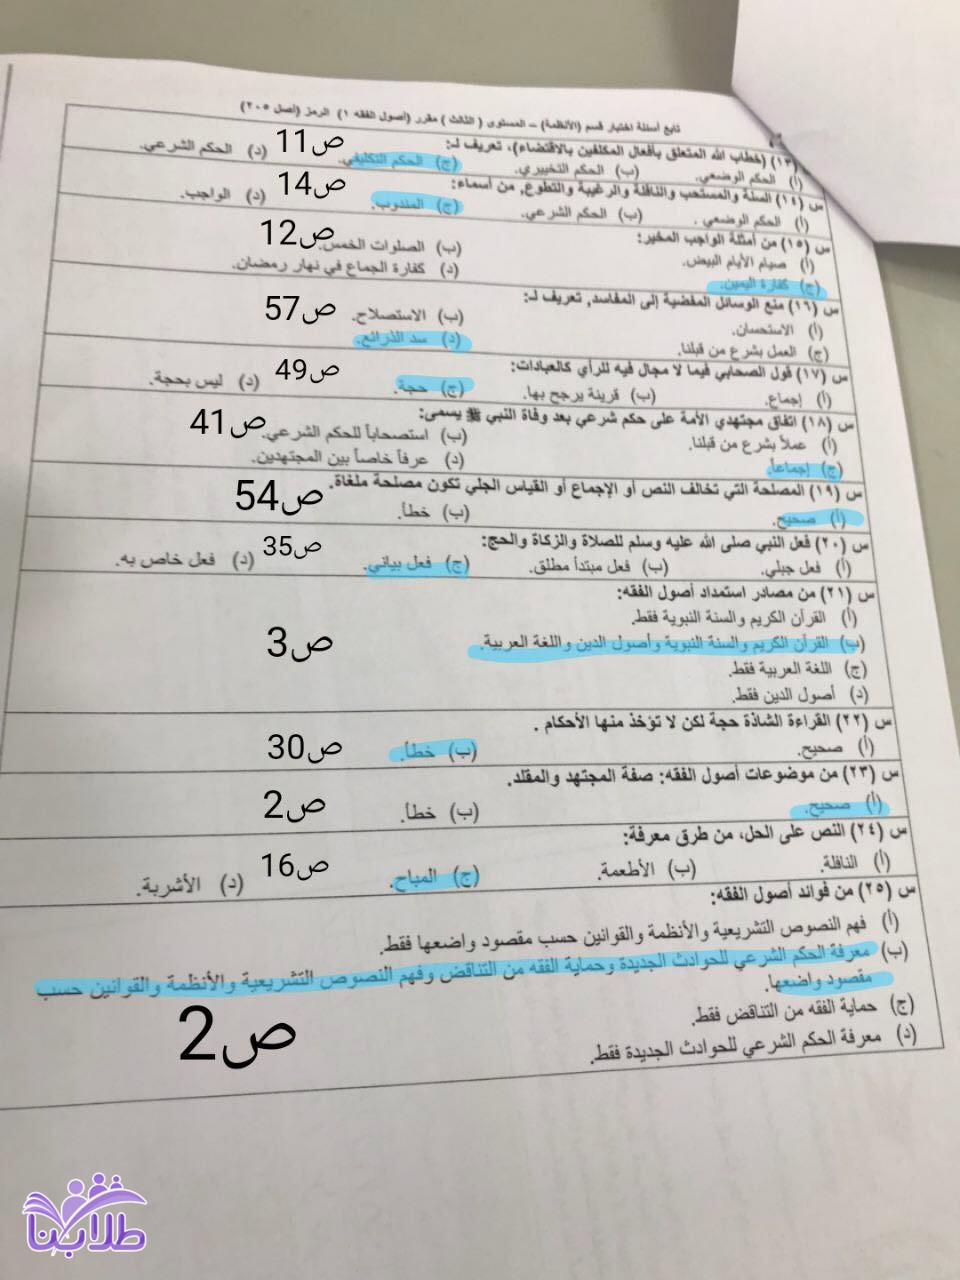 تابع أسئلة اختبار قسم (الأنظمة) – المستوى ( الثالث ) مقرر (أصول الفقه ١) الرمز (أصل ٢٠٥)
١٣) (خطاب الله المتعلق بأفعال المكلفين بالاقتضاء)، تعريف لـ: ص11
(أ) الحكم الوضعي. (ب) الحكم التخييري. (ج) الحكم التكليفي. (د) الحكم الشرعي.
س (١٤) السنة والمستحب والنافلة والرغيبة والتطوع, من أسماء: ص14
(أ) الحكم الوضعي . (ب) الحكم الشرعي. (ج) المندوب. (د) الواجب.
س (١٥) من أمثلة الواجب المخير: ص12
(أ) صيام الأيام البيض. (ب) الصلوات الخمس.
(ج) كفارة اليمين. (د) كفارة الجماع في نهار رمضان.
س (١٦) منع الوسائل المفضية إلى المفاسد, تعريف لـ: ص57
(أ) الاستحسان. (ب) الاستصلاح.
(ج) العمل بشرع من قبلنا. (د) سد الذرائع.
س (١٧) قول الصحابي فيما لا مجال فيه للرأي كالعبادات: ص49
(أ) إجماع. (ب) قرينة يرجح بها. (ج) حجة. (د) ليس بحجة.
س (١٨) اتفاق مجتهدي الأمة على حكم شرعي بعد وفاة النبي ﷺ يسمى: ص41
(أ) عملاً بشرع من قبلنا. (ب) استصحاباً للحكم الشرعي.
(ج) إجماعاً. (د) عرفاً خاصاً بين المجتهدين.
س (١٩) المصلحة التي تخالف النص أو الإجماع أو القياس الجلي تكون مصلحة ملغاة. ص54
(أ) صحيح. (ب) خطأ.
س (٢٠) فعل النبي صلى الله عليه وسلم للصلاة والزكاة والحج: ص35
(أ) فعل جبلي. (ب) فعل مبتدأ مطلق. (ج) فعل بياني. (د) فعل خاص به.
س (٢١) من مصادر استمداد أصول الفقه:
(أ) القرآن الكريم والسنة النبوية فقط.
(ب) القرآن الكريم والسنة النبوية وأصول الدين واللغة العربية. ص3
(ج) اللغة العربية فقط.
(د) أصول الدين فقط.
س (٢٢) القراءة الشاذة حجة لكن لا تؤخذ منها الأحكام .
(أ) صحيح. (ب) خطأ. ص30
س (٢٣) من موضوعات أصول الفقه: صفة المجتهد والمقلد.
(أ) صحيح. (ب) خطأ. ص2
س (٢٤) النص على الحل، من طرق معرفة:
(أ) النافلة. (ب) الأطعمة. (ج) المباح. (د) الأشربة. ص16
س (٢٥) من فوائد أصول الفقه:
(أ) فهم النصوص التشريعية والأنظمة والقوانين حسب مقصود واضعها فقط.
(ب) معرفة الحكم الشرعي للحوادث الجديدة وحماية الفقه من التناقض وفهم النصوص التشريعية والأنظمة والقوانين حسب
مقصود واضعها.
(ج) حماية الفقه من التناقض فقط.
(د) معرفة الحكم الشرعي للحوادث الجديدة فقط.
ص2
طلابنا